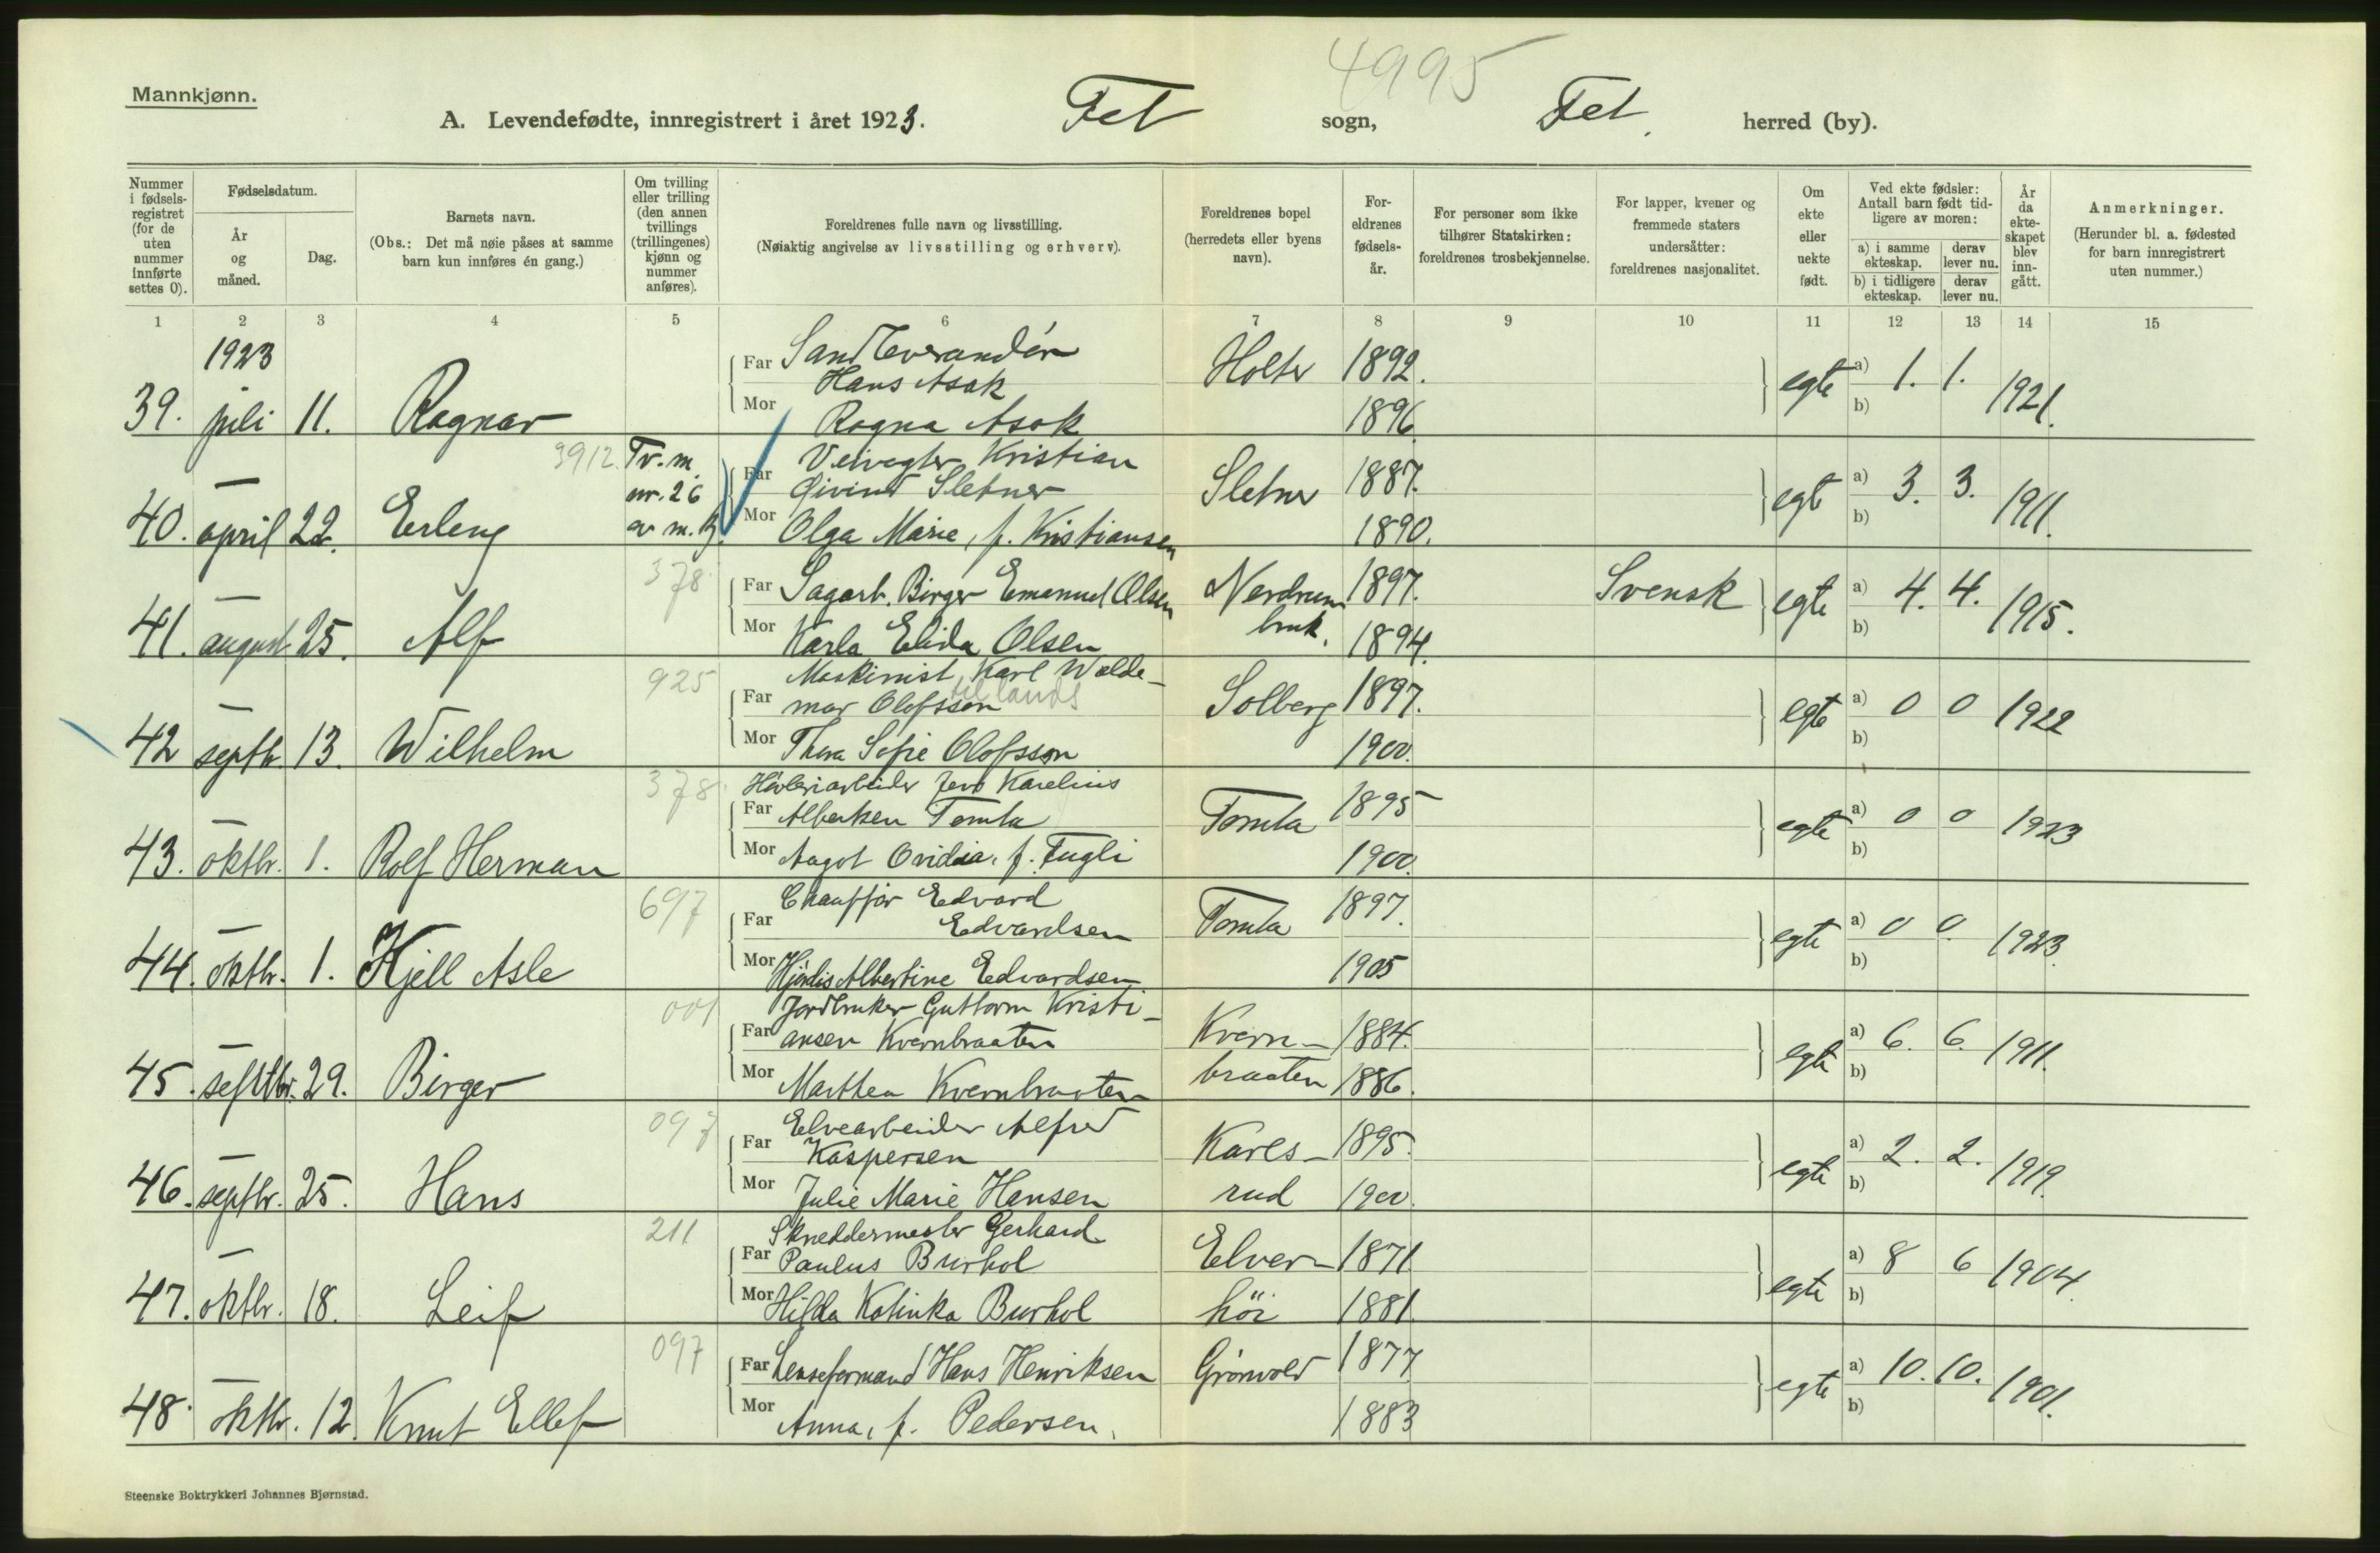 4995
Mannkjønn.
A. Levendefødte, innregistrert i året 1923. Fet sogn, Fet herred (by).
Nummer i fødsels-registret (for de uten nummer innførte settes 0).
Fødselsdatum.
År og måned.
Dag.
Barnets navn.
(Obs.: Det må nøie påses at samme barn kun innføres én gang.)
Om tvilling eller trilling (den annen tvillings (trillingenes) kjønn og nummer anføres).
Foreldrenes fulle navn og livsstilling.
(Nøiaktig angivelse av livsstilling og erhverv).
Foreldrenes bopel (herredets eller byens navn).
For-eldrenes fødsels-år.
For personer som ikke tilhører Statskirken: foreldrenes trosbekjennelse.
For lapper, kvener og fremmede staters undersåtter: foreldrenes nasjonalitet.
Om ekte eller uekte født.
Ved ekte fødsler: Antall barn født tid-ligere av moren:
a) i samme ekteskap.
derav lever nu.
b) i tidligere ekteskap.
derav lever nu.
År da ekte-skapet blev inn-gått.
Anmerkninger.
(Herunder bl. a. fødested for barn innregistrert uten nummer.)
1 2 3 4 5 6 7 8 9 10 11 12 13 14 15
1923
Far
Hans Asak Holter 1892. egte a) 1. 1. 1921.
39. juli 11. Ragnar Mor Ragna Asak 1896 b)
3912. Tv. m. Far Veivogter Kristian Sletner 1887. egte a) 3. 3. 1911.
nr. 26 Øivind Sletner
40. april 22. Erling av m.kj. Mor Olga Marie, f. Kristiansen 1890. b)
378 Far Sagarb. Birger Emanuel Olsen Nerdrum 1897. Svensk egte a) 4. 4. 1915.
41. august 25. Alf Mor Karla Elida Olsen bruk. 1894. b)
925 Maskinist, Karl Walde-
Far mar Olofsson til lands Solberg 1897. egte a) 0 0 1922
42 septb. 13. Wilhelm Mor Thora Sofie Olofsson 1900. b)
378 Høvleriarbeider Jens Karelius
Far Albertsen Tomta Tomta 1895 egte a) 0 0 1923
43. oktbr. 1. Rolf Herman Mor Aagot Ovidia, f. Fugli 1900. b)
697 Chauffør Edvard
Far Edvardsen Tomta 1897. egte a) 0 0 1923.
44. oktbr. 1. Kjell Asle Mor Hjørdis Albertine Edvardsen 1905 b)
001 Jordbruker Guttorm Kristi-
Far ansen Kvernbraaten Kvern- 1884. egte a) 6. 6. 1911.
45. septbr. 29. Birger Mor Marthea Kvernbraaten braaten 1886. b)
097 Elvearbeider Alfred
Far Kaspersen Karls- 1895. egte a) 2. 2. 1919.
46. septbr. 25. Hans Mor Julie Marie Hansen rud 1900. b)
211 Skreddermester Gerhard
Far Paulus Burhol Elver- 1871 egte a) 8 6 1904.
47. oktbr. 18. Leif Mor Hilda Katinka Burhol höi 1881. b)
097 Far Lenseformand Hans Henriksen Grønvold 1877 egte a) 10. 10. 1901.
48. oktbr. 12. Knut Ellef Mor Anna, f. Pedersen. 1883 b)
Steenske Boktrykkeri Johannes Bjørnstad.